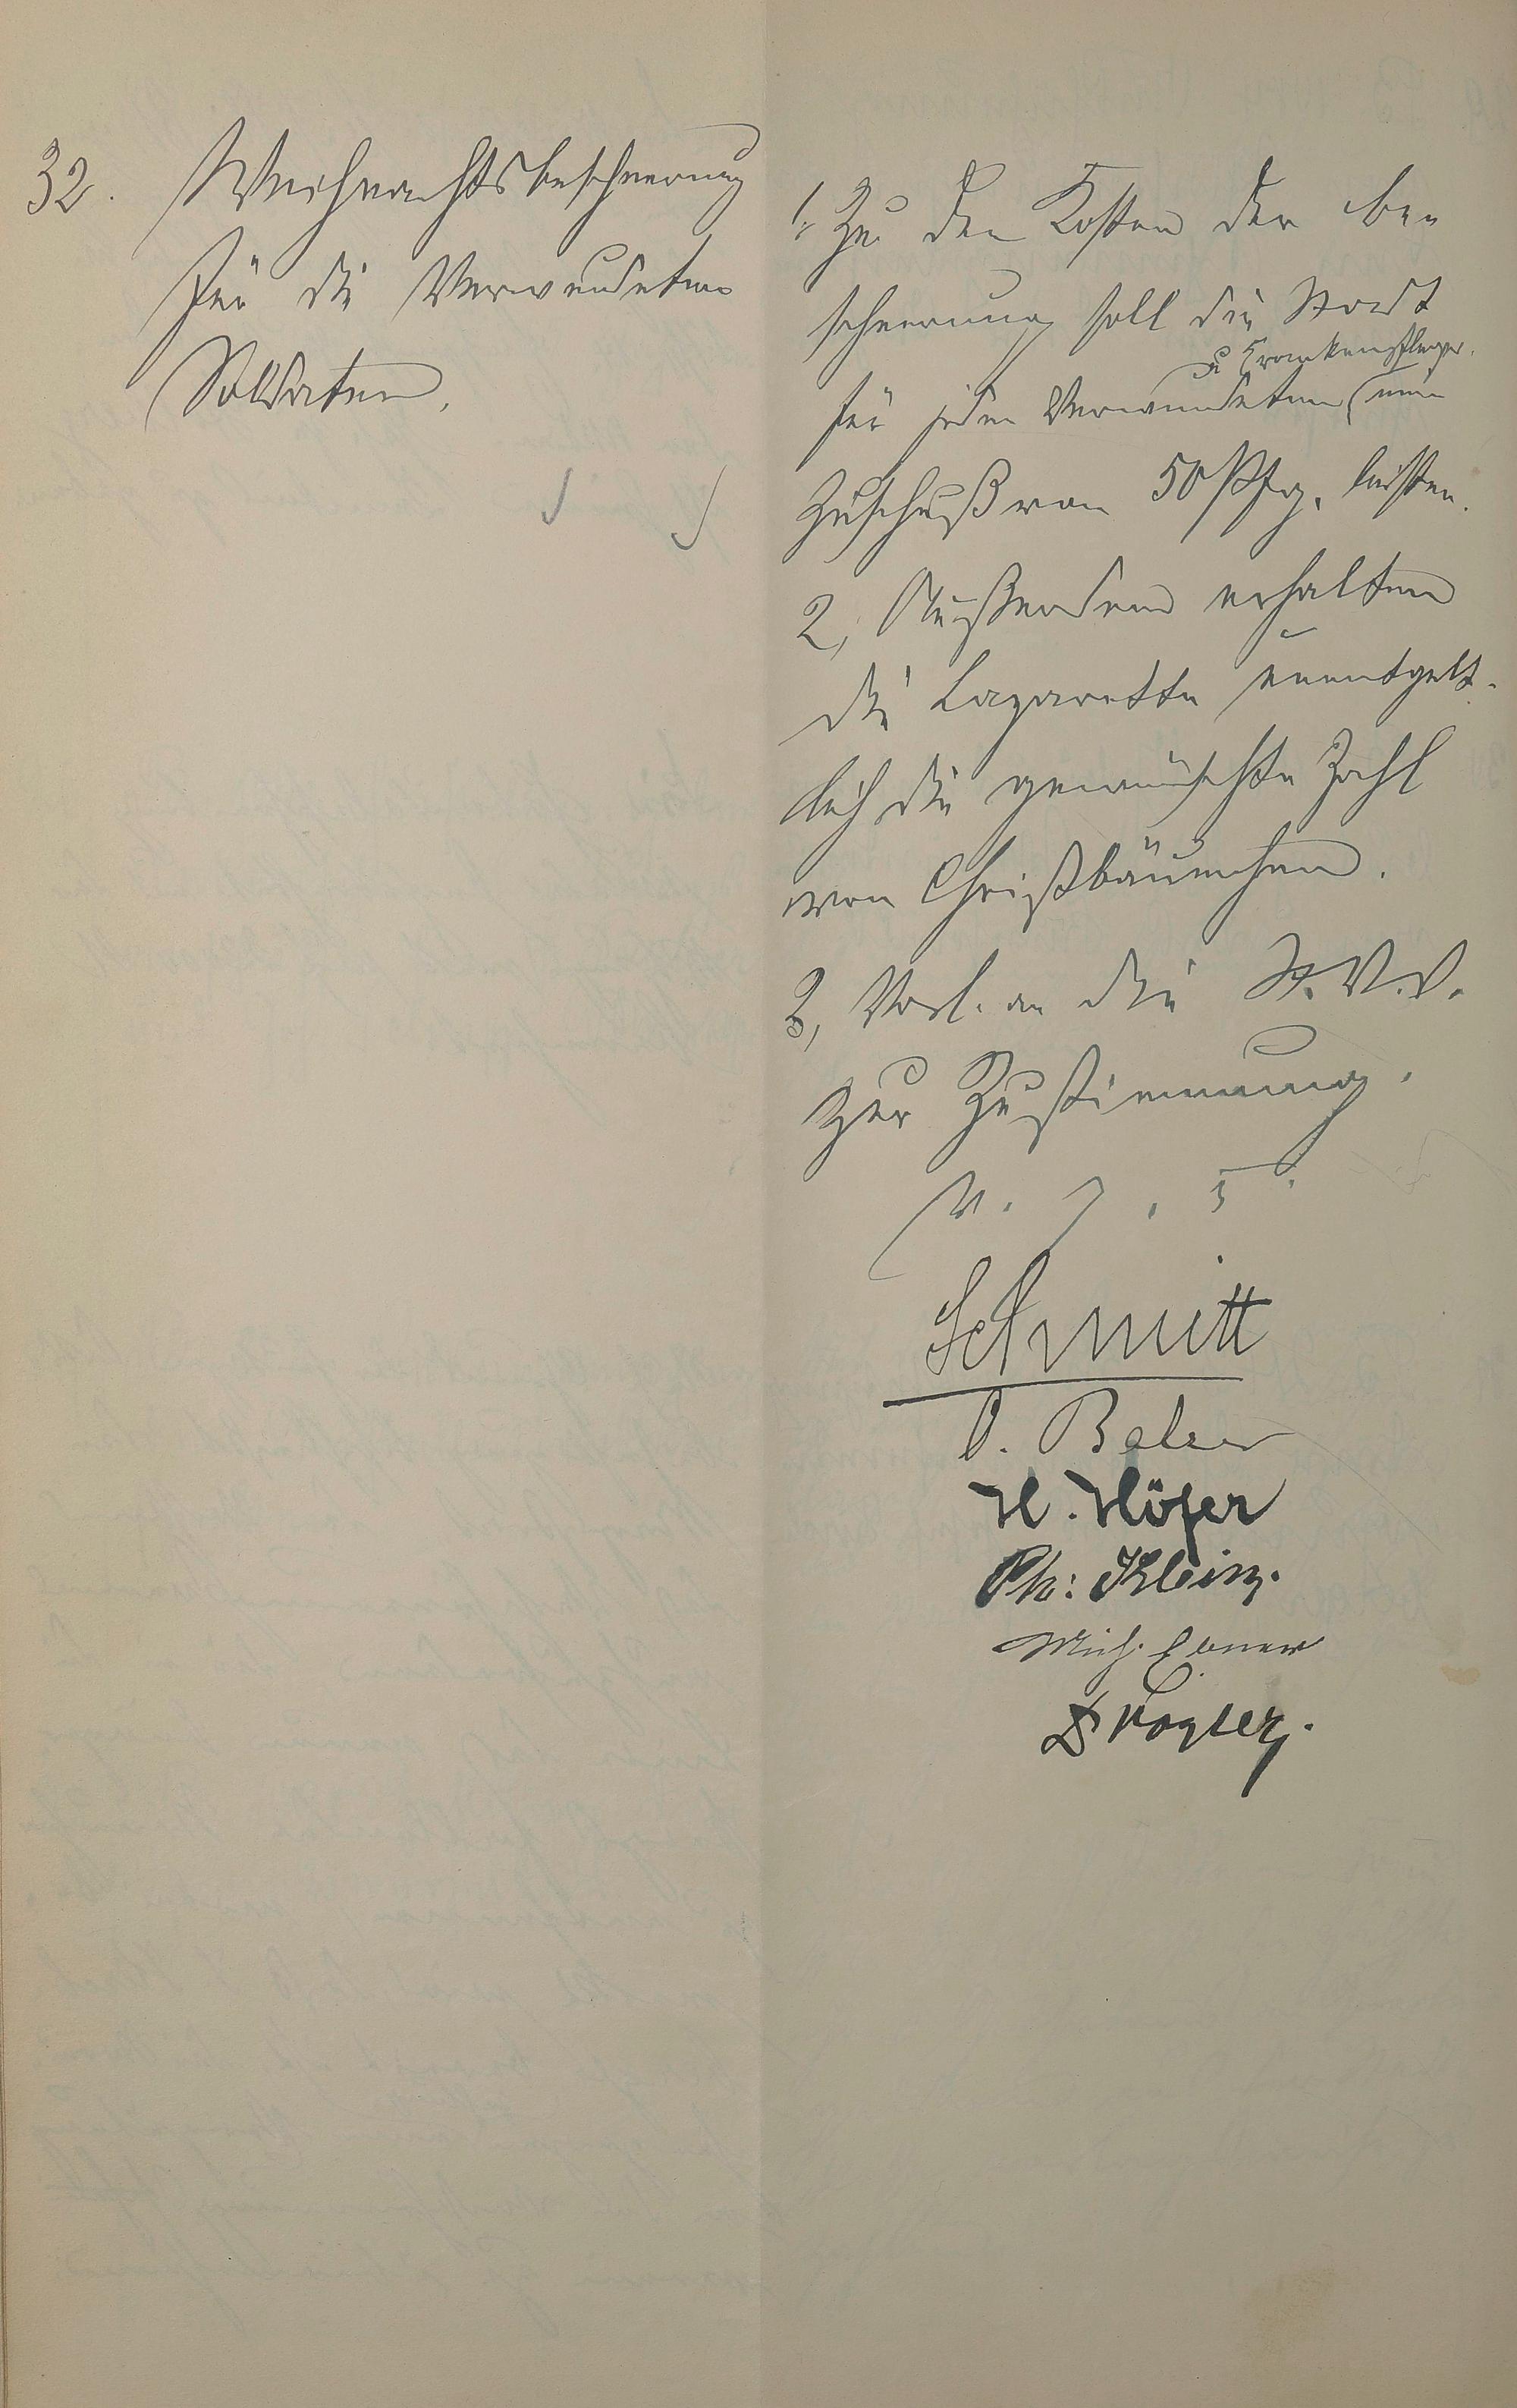 32. Weihnachtsbescheerung
für die Verwundeten
Soldaten.
1. Zu den Kosten der Be-
scheerung soll die Stadt
u Krankenpfleger.
für jeden Verwundeten (einen
Zuschuß von 50 Pfg. leisten.
2, Außerdem erhalten
die Lazarette unentgelt-
lich die gewünschte Zahl
von Christbäumchen.
3, Vorl. an die St.V.V.
zur Zustimmung.
v. g. u.
Schmitt
H. Höfer
Ph: Klein.
Mich. Ebner
Vogler.